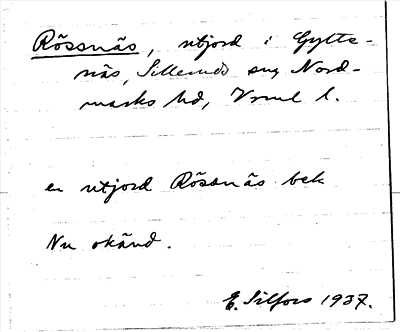 Rössnäs, utjord i Gytte-
näs, Sillerud sn, Nord-
marks hd, Vrml l.
en utjord Rössnäs bek
Nu okänd.
E. Silfors 1937.